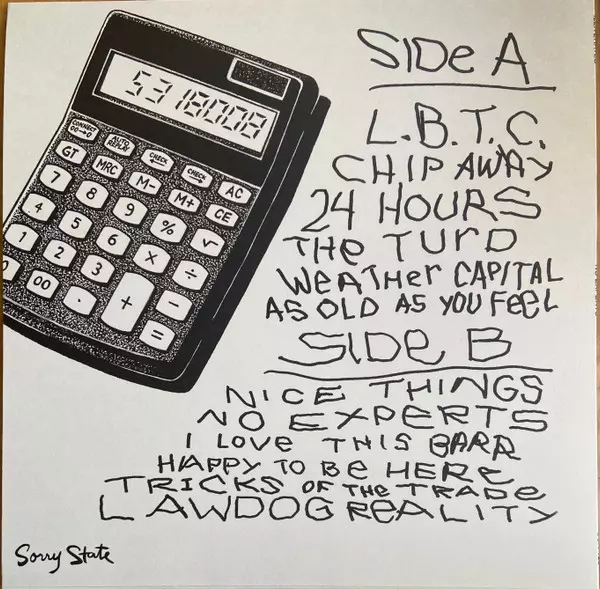 5318008
CONNECT GO→O
AUTO REPLAY
CHECK ←
CHECK →
AC
GT
MRC
M-
M+
CE
7
8
9
%
√
4
5
6
×
÷
1
2
3
+
-
0
00
.
=
SIDE A
L.B.T.C.
CHIP AWAY
24 HOURS
THE TURD
WEATHER CAPITAL
AS OLD AS YOU FEEL
SIDE B
NICE THINGS
NO EXPERTS
I LOVE THIS BARR
HAPPY TO BE HERE
TRICKS OF THE TRADE
LAWDOG REALITY
Sorry State